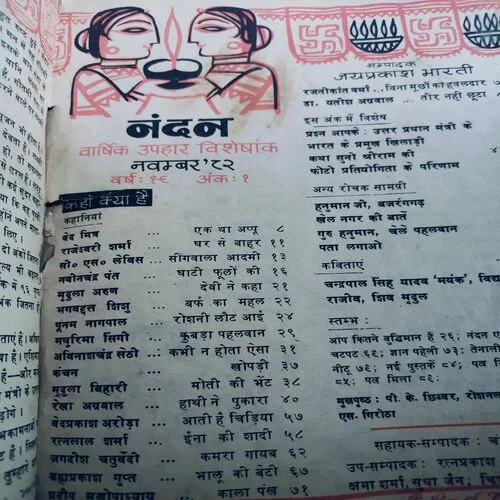 नंदन
वार्षिक उपहार विशेषांक
नवम्बर '८२
वर्ष: १९ अंक: १
कहाँ क्या है
कहानियां
वेद मित्र ... एक था अप्पू ८
राजेश्वरी शर्मा ... घर से बाहर ११
सी० एस० लेविस ... सींगवाला आदमी १३
नवीनचंद्र पंत ... घाटी फूलों की १६
मृदुला अरुण ... देवी ने कहा २१
भगवद्दत्त शिशु ... बर्फ का महल २२
पूनम नागपाल ... रोशनी लौट आई २४
मधुरिमा सिंगी ... कुबड़ा पहलवान २९
अविनाशचंद्र सेठी ... कभी न होता ऐसा ३१
कंचन ... खोपड़ी ३७
मृदुला बिहारी ... मोती की भेंट ३८
रेखा अग्रवाल ... हाथी ने पुकारा ४०
वेदप्रकाश अरोड़ा ... आती है चिड़िया ५७
रत्नलाल शर्मा ... ईना की शादी ५८
जगदीश चतुर्वेदी ... कमरा गायब ६२
ब्रह्मप्रकाश गुप्त ... भालू की बेटी ६७
प्रदीप मुखोपाध्याय ... काला पंख ७१
सम्पादक
जयप्रकाश भारती
रजनीकांत वर्मा ... बिना मूंछों का हवलदार
डा. यतीश अग्रवाल ... तीर नहीं छूटा
इस अंक में विशेष
प्रश्न आपके : उत्तर प्रधान मंत्री के
भारत के प्रमुख खिलाड़ी
कथा सुनो श्रीराम की
फोटो प्रतियोगिता के परिणाम
अन्य रोचक सामग्री
हनुमान जी, बजरंगगढ़
खेल नगर की बातें
गुरु हनुमान, चेले पहलवान
पता लगाओ
कविताएं
चन्द्रपाल सिंह यादव 'मयंक',
राजीव, शिव मृदुल
स्तम्भ :
आप कितने बुद्धिमान हैं २६; नंदन
चटपट ६९; ज्ञान पहेली ७३; तेनाली
नीटू ७६; नई पुस्तकें ८४;
८५; पत्र मिला ८६;
मुखपृष्ठ : पी. के. छिब्बर,
एस. गिरोठा
सहायक-सम्पादक :
उप-सम्पादक : रत्नप्रकाश
क्षमा शर्मा, सुधा जैन;